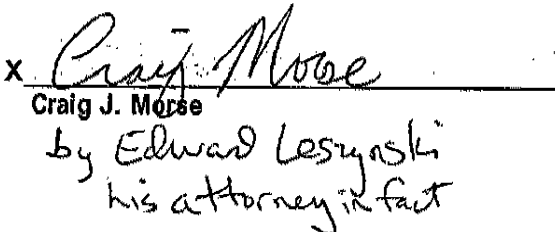 X Craig Morse
Craig J. Morse
by Edward Leszynski
his attorney in fact